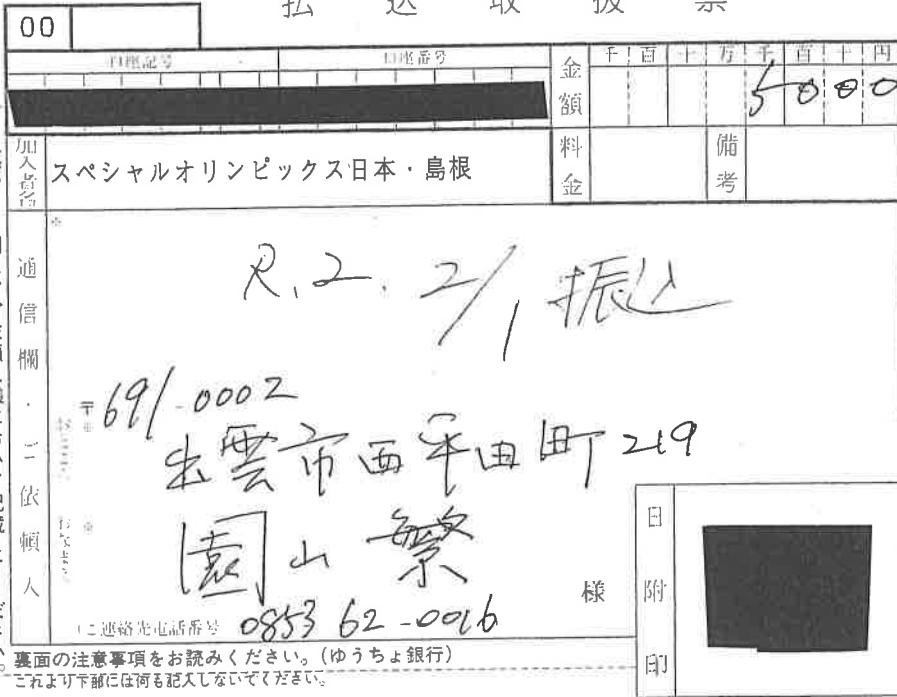 払込取扱票
00
口座記号 口座番号
金額 千 百 十 万 千 百 十 円
5000
加入者名 スペシャルオリンピックス日本・島根
料金 備考
通信欄・ご依頼人
R.2. 2/1 振込
〒691-0002
出雲市西平田町219
園山繁
様
ご連絡先電話番号 0853 62-0016
日附印
裏面の注意事項をお読みください。(ゆうちょ銀行)
これより下部には何も記入しないでください。